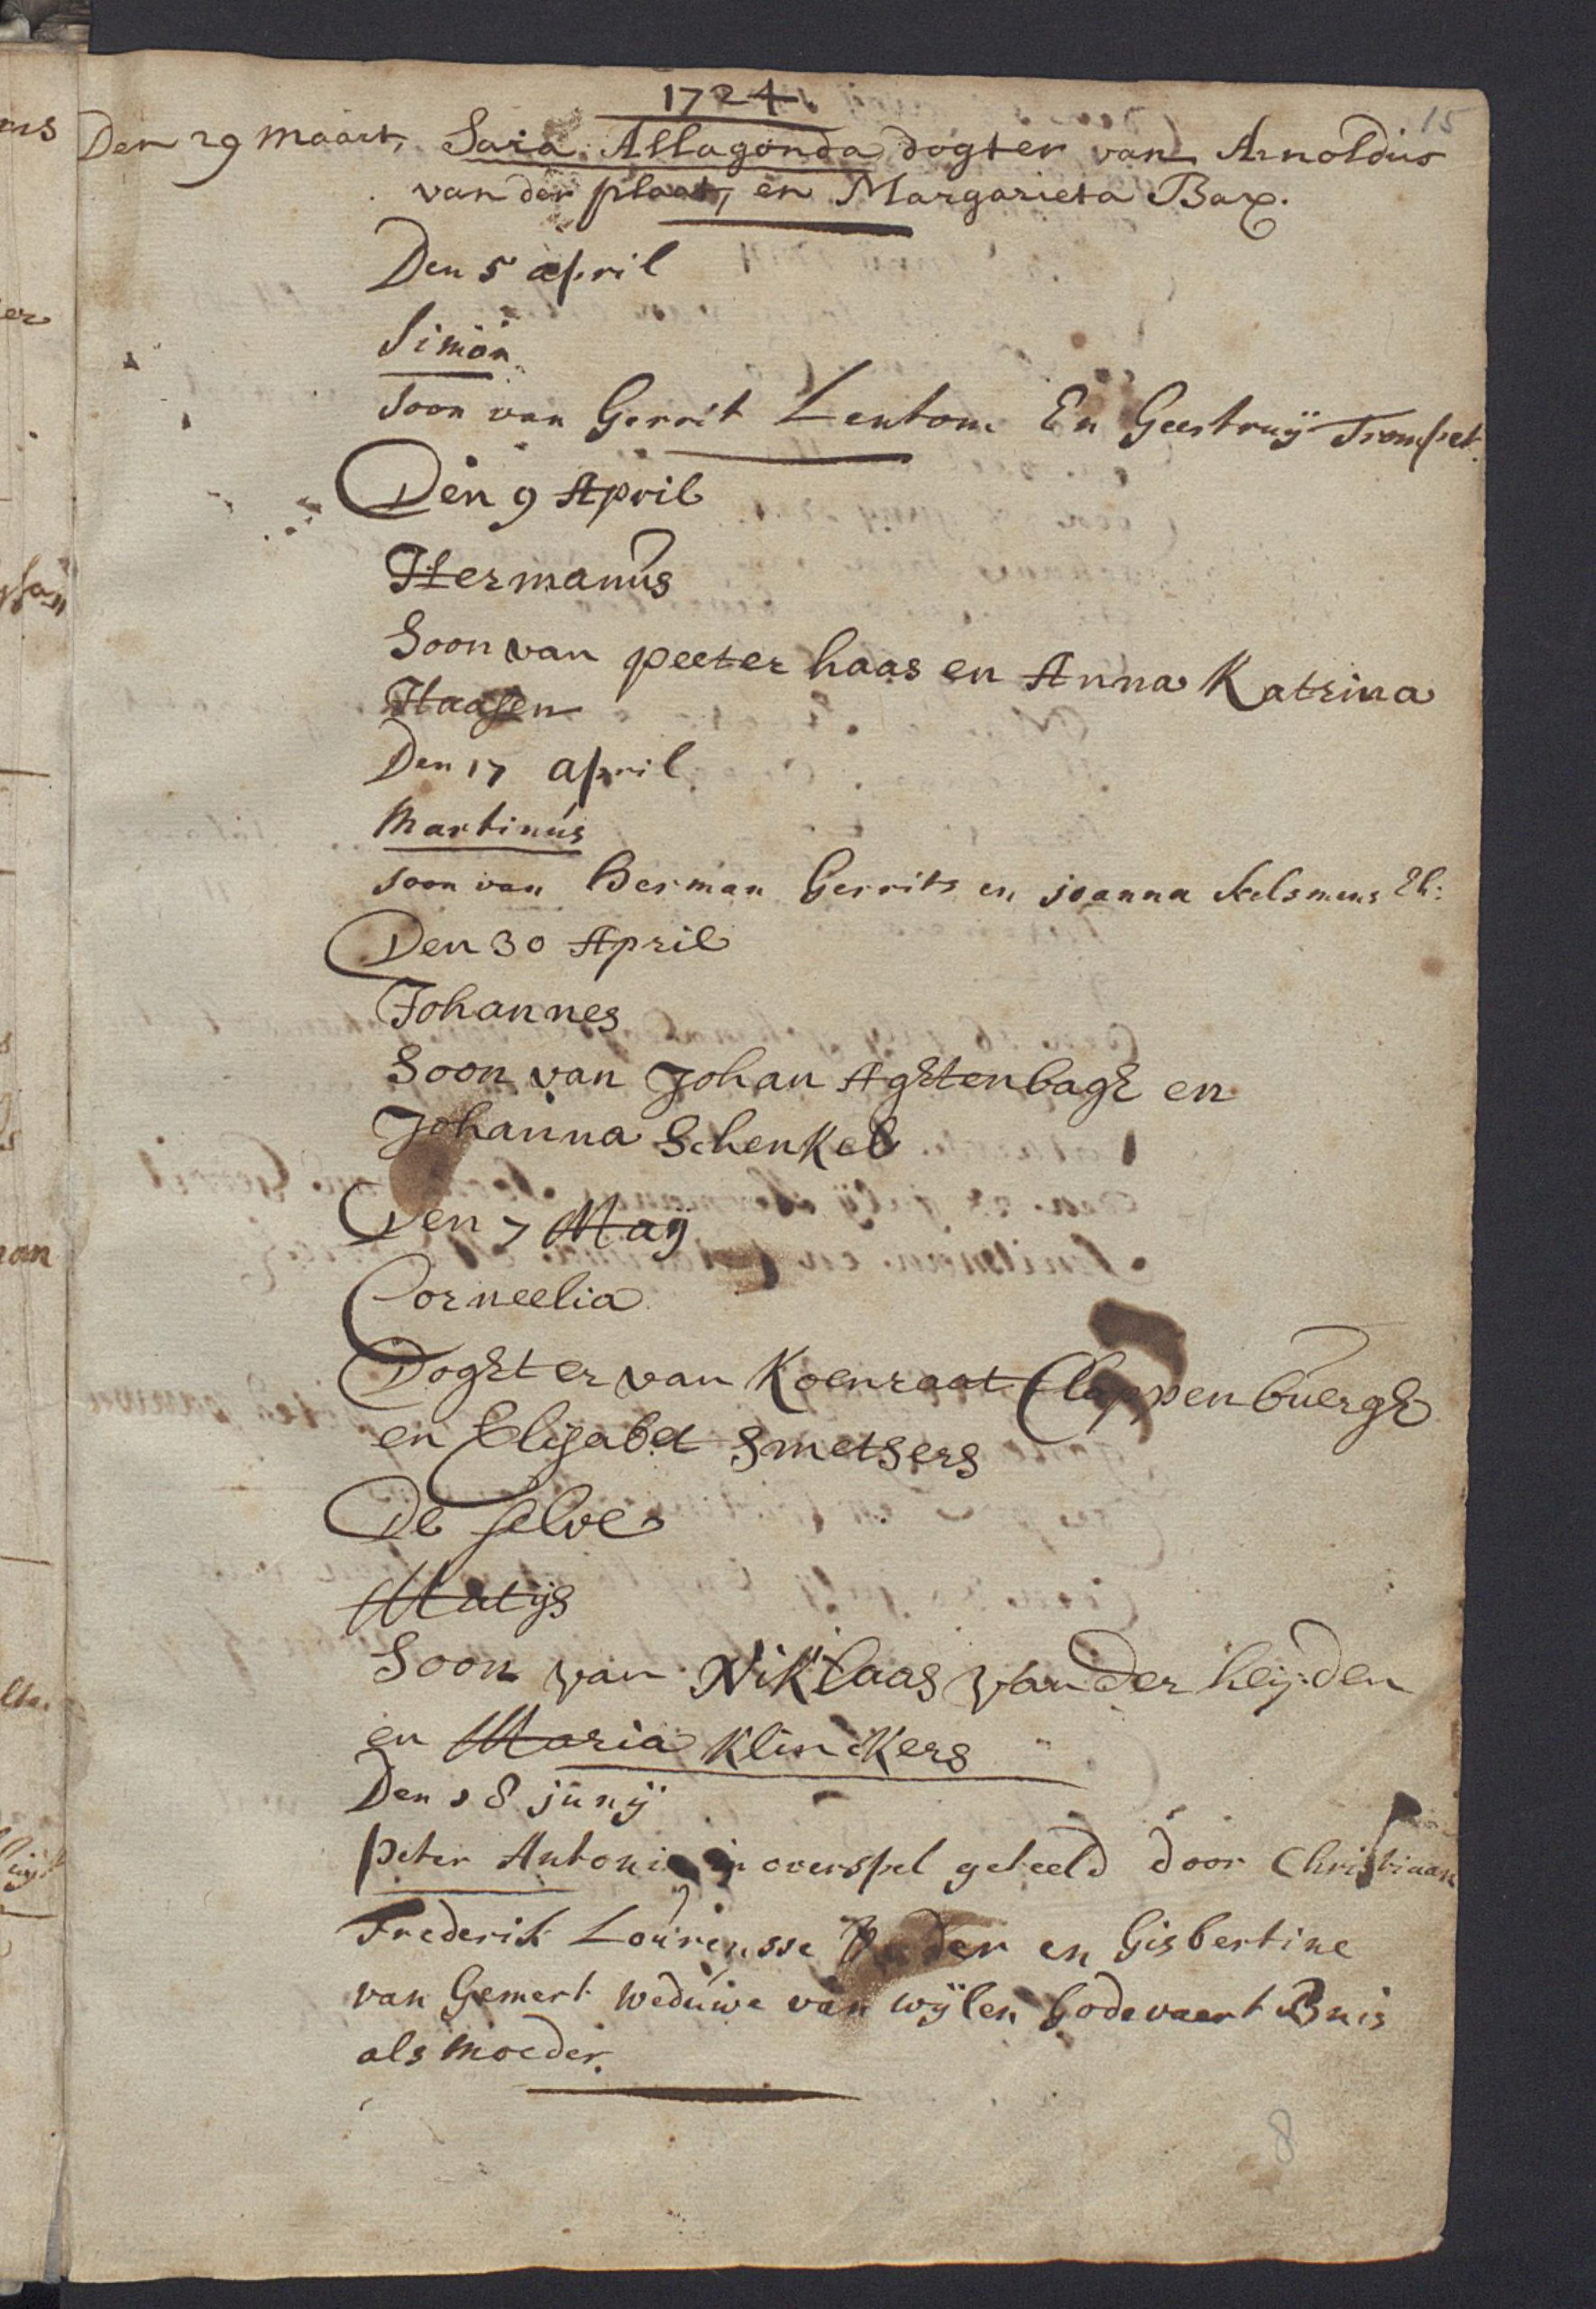 1724
15
Den 29 maart, Sara Allagonda dogter van Arnoldus
van der plaat, en Margarieta Bax.
Den 5 april
Simon
soon van Gerrit Lentom En Geertruÿ Trompet.
Den 9 April
Hermanus
Soon van peeter haas en Anna Katrina
Haasen
Den 17 april
Martinus
soon van Herman Gerrits en joanna
Den 30 April
Johannes
Soon van Johan Aghtenbagh en
Johanna Schenkel
Den 7 Maÿ
Corneelia
Doghter van Koenraat Clappenbuergh
en Elisabet Smetsers
De selve
Matijs
Soon van Niklaas van der heijden
en Maria Klinckers
Den 18 junÿ
peter Antoni in overspel geteeld door Christiaan
Frederik Lourensse en Gisbertine
van Gemert weduwe van wÿlen Godevaert Buis
als moeder.
8